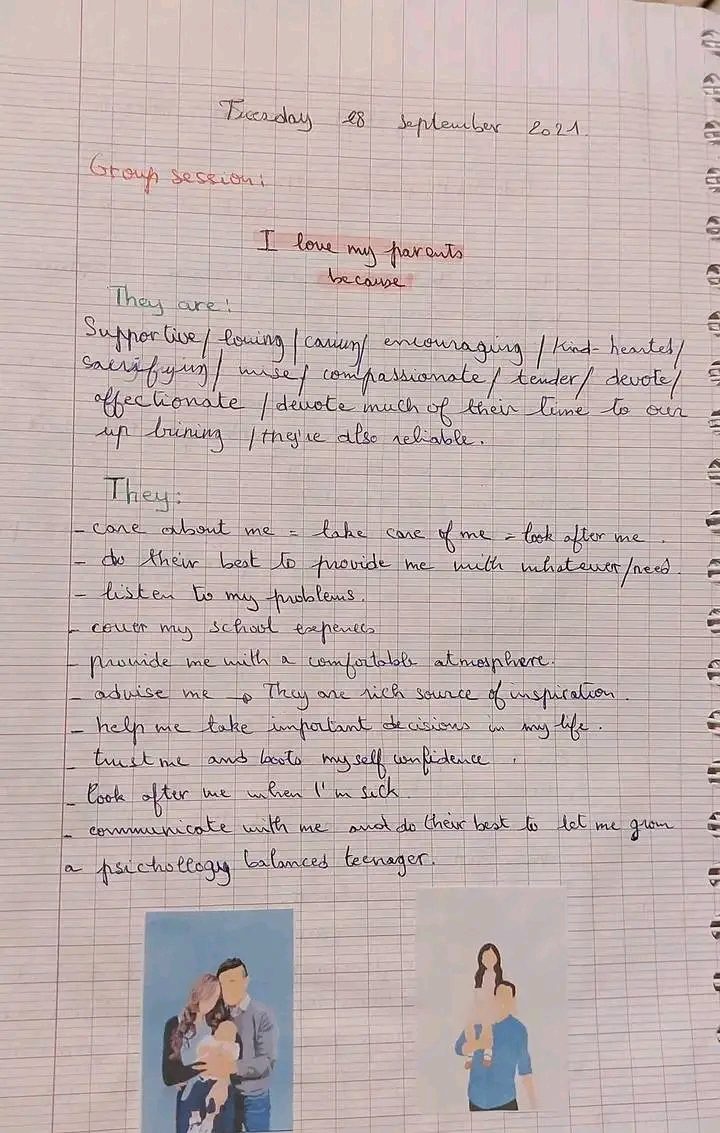 Tuesday 28 september 2021.
Group session:
I love my parents
because
They are:
Supportive/ loving / caring/ encouraging / kind-hearted/
sacrifying / wise/ compassionate / tender/ devote/
affectionate / devote much of their time to our
up brining / they're also reliable.
They:
- care about me = take care of me = look after me.
- do their best to provide me with whatever/need.
- listen to my problems.
- cover my school expences
- provide me with a comfortable atmosphere.
- advise me → They are rich source of inspiration.
- help me take important decisions in my life.
- trust me and boots myself confidence.
- look after me when I'm sick.
- communicate with me and do their best to let me grow
a psichollogy balanced teenager.